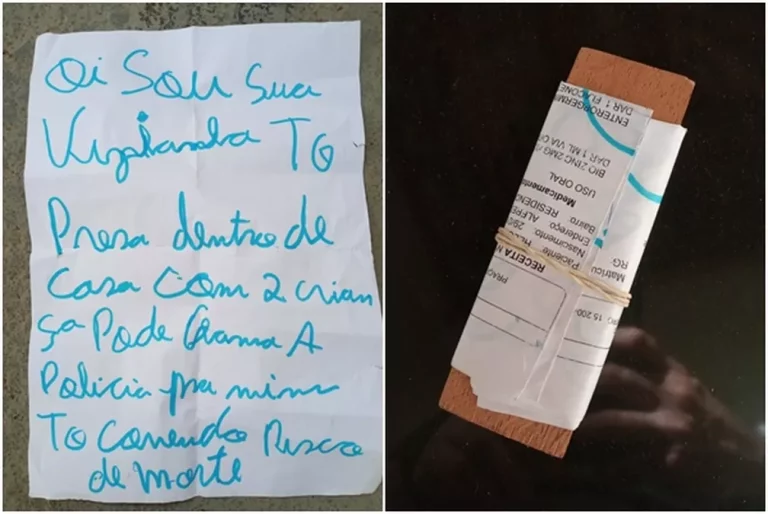 Oi Sou Sua
TO
Presa dentro de
Casa Com 2 crian
ça Pode Chama A
Policia pra mim
To Correndo Risco
de morte
RECEITA
Paciente:
Nascimento: 29/
Endereço: ALFRE
Bairro: RESIDENC
Medicamento
USO ORAL
BIO ZINC 2MG/
DAR 1 ML VIA O
ENTEROGERMI
DAR 1 FLACONE
Matricu
RG:
15 200-